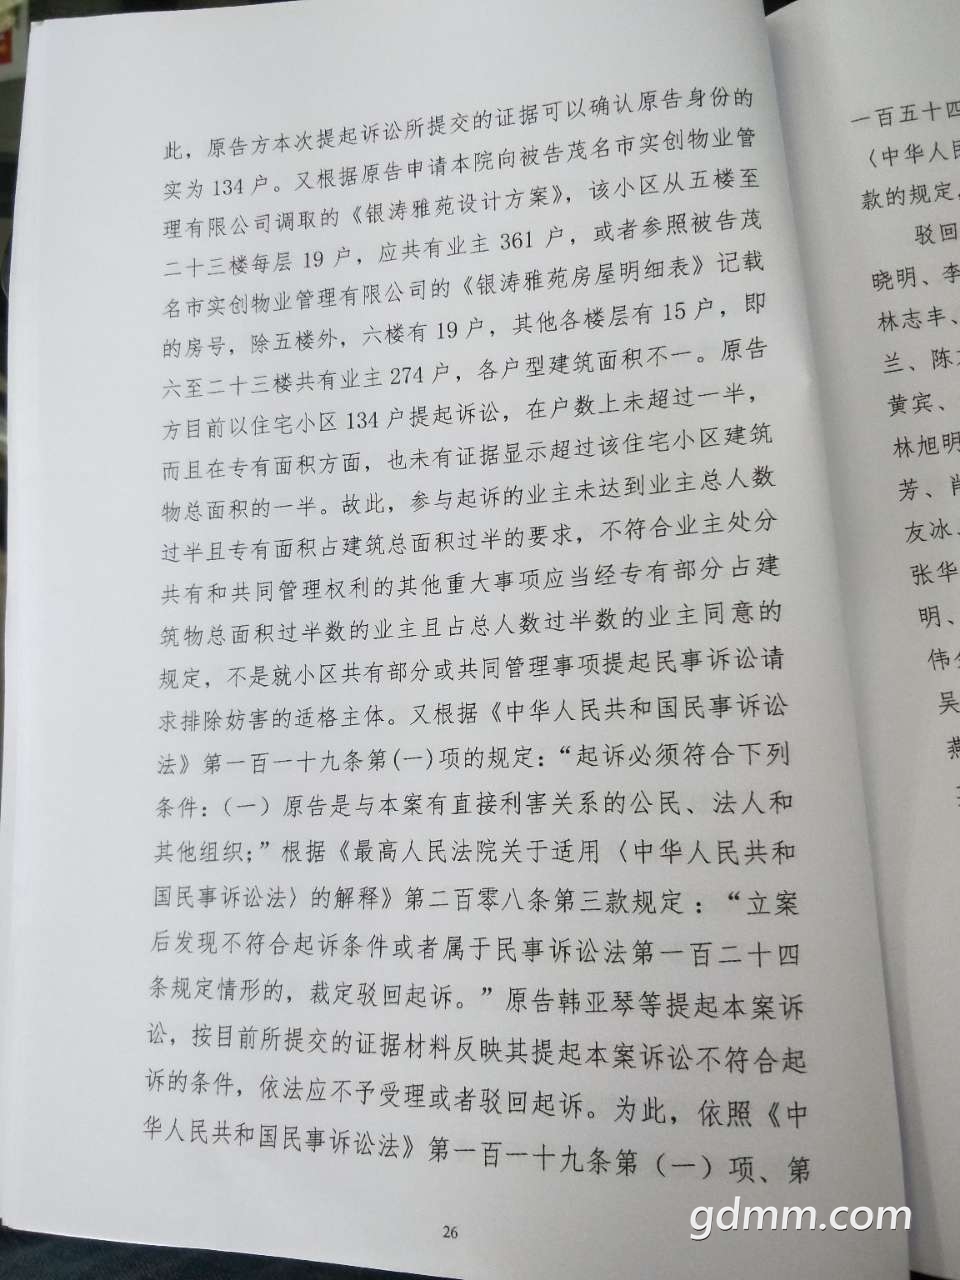 此，原告方本次提起诉讼所提交的证据可以确认原告身份的
实为134户。又根据原告申请本院向被告茂名市实创物业管
理有限公司调取的《银涛雅苑设计方案》，该小区从五楼至
二十三楼每层19户，应共有业主361户，或者参照被告茂
名市实创物业管理有限公司的《银涛雅苑房屋明细表》记载
的房号，除五楼外，六楼有19户，其他各楼层有15户，即
六至二十三楼共有业主274户，各户型建筑面积不一。原告
方目前以住宅小区134户提起诉讼，在户数上未超过一半，
而且在专有面积方面，也未有证据显示超过该住宅小区建筑
物总面积的一半。故此，参与起诉的业主未达到业主总人数
过半且专有面积占建筑总面积过半的要求，不符合业主处分
共有和共同管理权利的其他重大事项应当经专有部分占建
筑物总面积过半数的业主且占总人数过半数的业主同意的
规定，不是就小区共有部分或共同管理事项提起民事诉讼请
求排除妨害的适格主体。又根据《中华人民共和国民事诉讼
法》第一百一十九条第(一)项的规定：“起诉必须符合下列
条件：（一）原告是与本案有直接利害关系的公民、法人和
其他组织;”根据《最高人民法院关于适用〈中华人民共和
国民事诉讼法〉的解释》第二百零八条第三款规定：“立案
后发现不符合起诉条件或者属于民事诉讼法第一百二十四
条规定情形的，裁定驳回起诉。”原告韩亚琴等提起本案诉
讼，按目前所提交的证据材料反映其提起本案诉讼不符合起
诉的条件，依法应不予受理或者驳回起诉。为此，依照《中
华人民共和国民事诉讼法》第一百一十九条第（一）项、第
26
一百五十四
〈中华人民
款的规定，
驳回
晓明、李
林志丰、
兰、陈
黄宾、
林旭明
芳、肖
友冰、
张华
明、
伟
吴
燕
gdmm.com